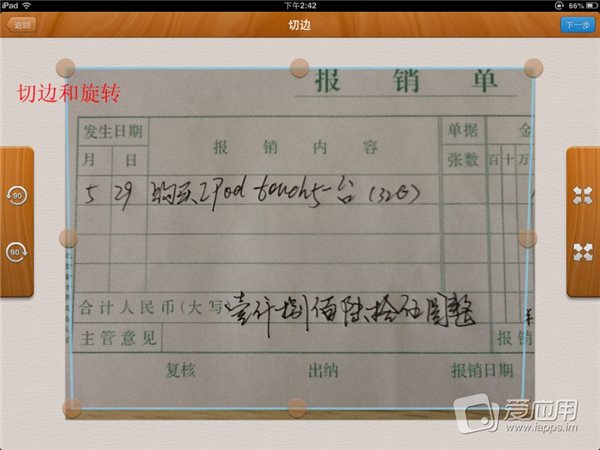 iPad 下午2:42 66%
返回 切边 下一步
切边和旋转
报销单
发生日期 报销内容 单据 金
月 日 张数 百十万
5 29 购买iPod touch5一台(32G)
合计人民币(大写 壹仟捌佰陆拾伍圆整
主管意见 报销
复核 出纳 报销日期
90
90
爱应用
www.iapps.im